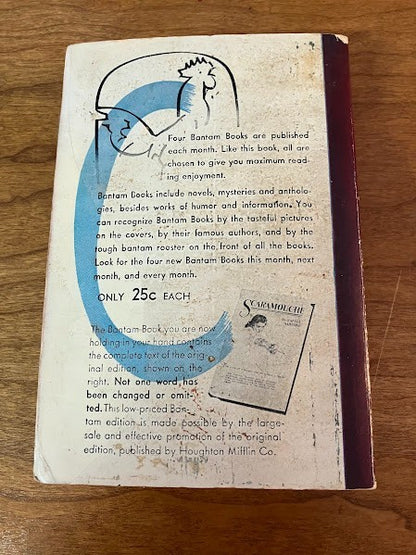 Four Bantam Books are published
each month. Like this book, all are
chosen to give you maximum read-
ing enjoyment.
Bantam Books include novels, mysteries and antholo-
gies, besides works of humor and information. You
can recognize Bantam Books by the tasteful pictures
on the covers, by their famous authors, and by the
rough bantam rooster on the front of all the books.
Look for the four new Bantam Books this month, next
month, and every month.
ONLY 25c EACH
The Bantam Book you are now
holding in your hand contains
the complete text of the orig-
inal edition, shown on the
right. Not one word has
been changed or omit-
ted. This low-priced Ban-
tam edition is made possible by the large-
sale and effective promotion of the original
edition, published by Houghton Mifflin Co.
SCARAMOUCHE